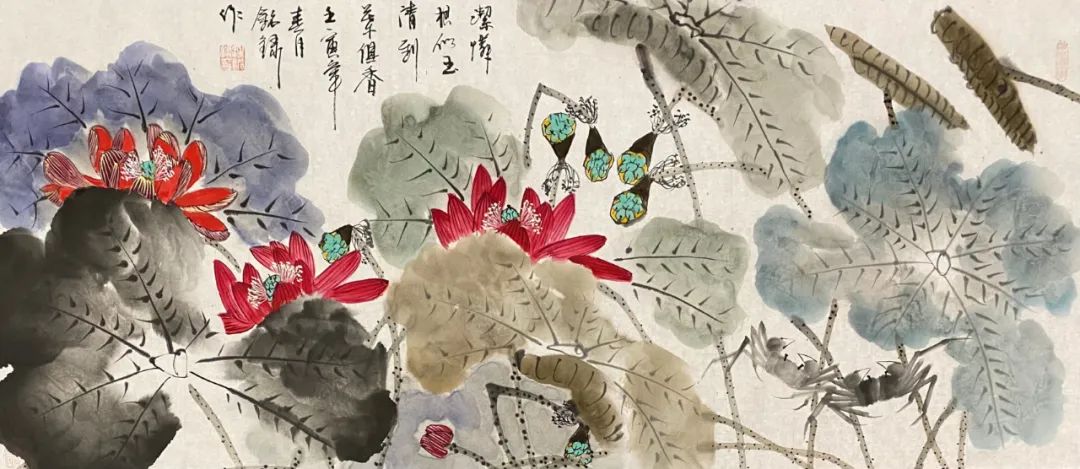 潔憐
根似玉
清到
葉俱香
壬寅年
春月
銘
作